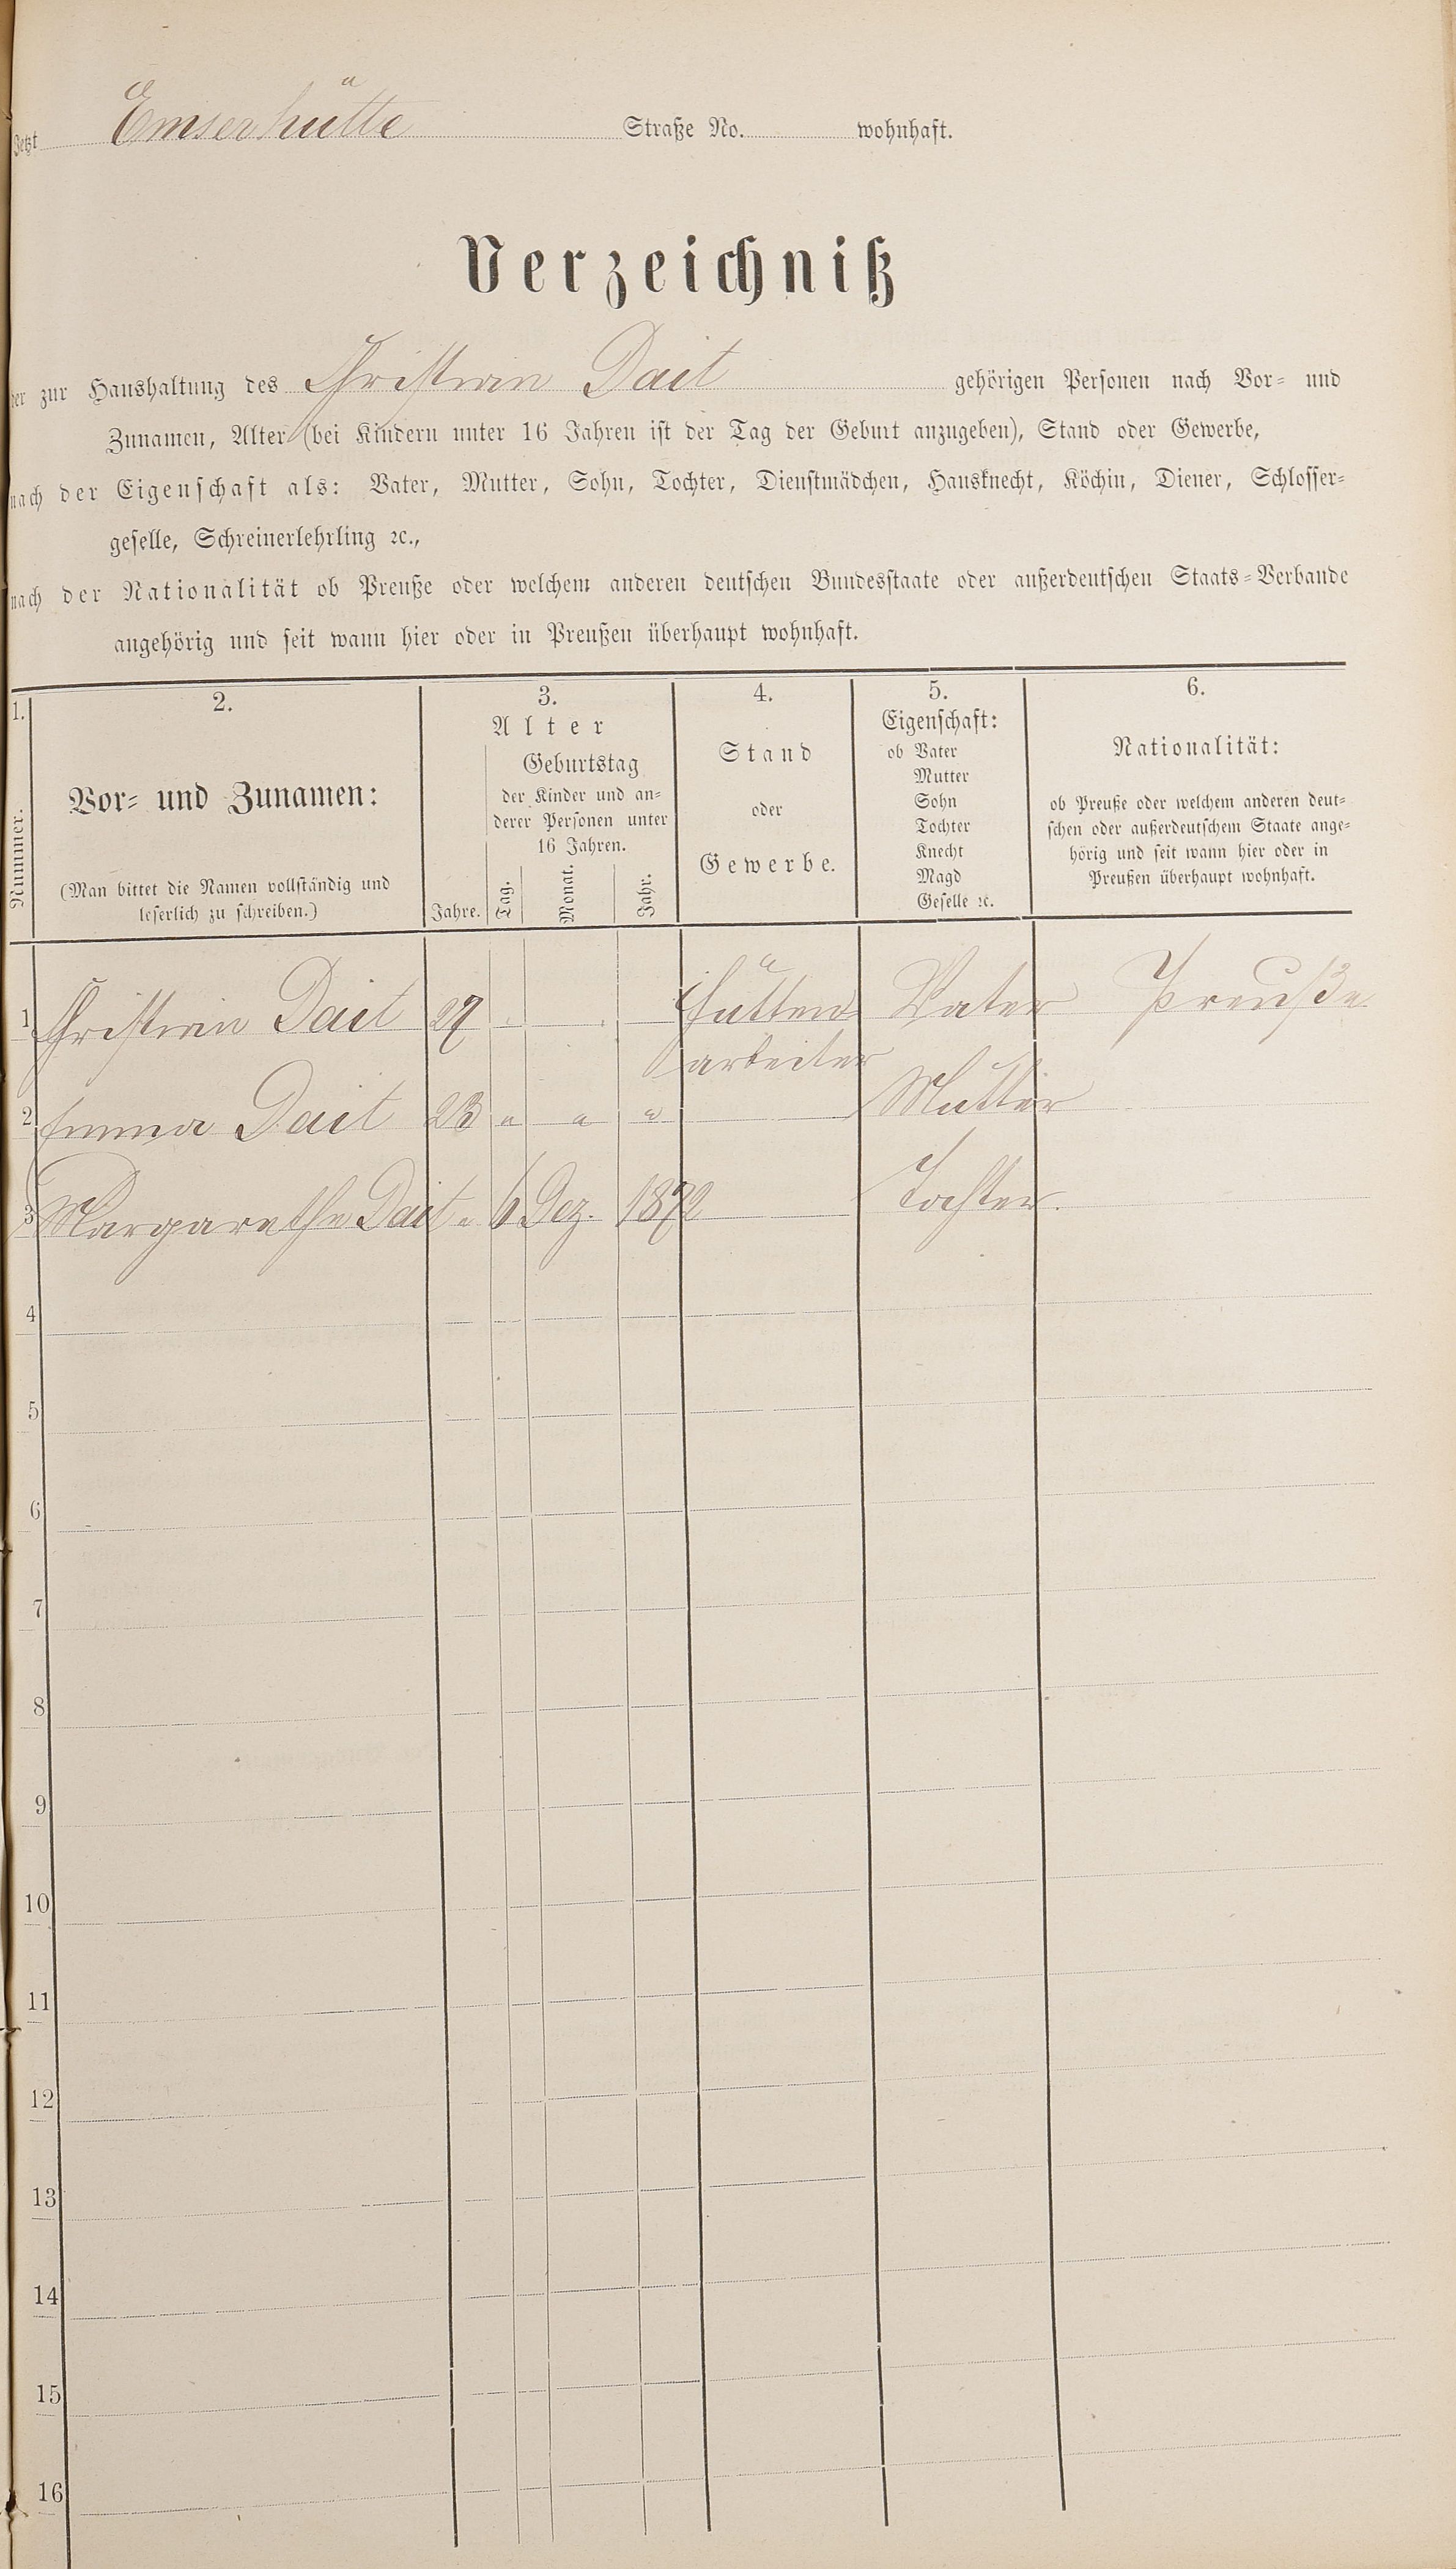 Jetzt Emserhütte Straße No. wohnhaft.
Verzeichniß
der zur Haushaltung des Christian Dait gehörigen Personen nach Vor- und
Zunamen, Alter (bei Kindern unter 16 Jahren ist der Tag der Geburt anzugeben), Stand oder Gewerbe,
nach der Eigenschaft als: Vater, Mutter, Sohn, Tochter, Dienstmädchen, Hausknecht, Köchin, Diener, Schlosser-
geselle, Schreinerlehrling ꝛc.,
nach der Nationalität ob Preuße oder welchem anderen deutschen Bundesstaate oder außerdeutschen Staats-Verbande
angehörig und seit wann hier oder in Preußen überhaupt wohnhaft.
1.
Nummer.
2.
Vor- und Zunamen:
(Man bittet die Namen vollständig und
leserlich zu schreiben.)
3.
Alter
Jahre.
Geburtstag
der Kinder und an-
derer Personen unter
16 Jahren.
Tag.
Monat.
Jahr.
4.
Stand
oder
Gewerbe.
5.
Eigenschaft:
ob Vater
Mutter
Sohn
Tochter
Knecht
Magd
Geselle ꝛc.
6.
Nationalität:
ob Preuße oder welchem anderen deut-
schen oder außerdeutschem Staate ange-
hörig und seit wann hier oder in
Preußen überhaupt wohnhaft.
1 Christian Dait 27 Hütten Vater Preuße
arbeiter
2 Emma Dait 23 " " " Mutter
3 Margarethe Dait " 6 Dez. 1872 Tochter.
4
5
6
7
8
9
10
11
12
13
14
15
16